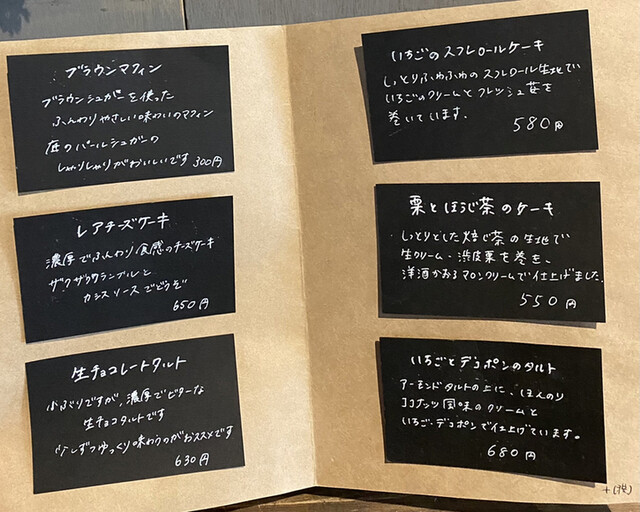 ブラウンマフィン
ブラウンシュガーを使った
ふんわりやさしい味わいのマフィン
苺のパールシュガーの
しゃりしゃりがおいしいです 300円
レアチーズケーキ
濃厚でふんわり食感のチーズケーキ
ザクザククランブルと
カシスソースでどうぞ
650円
生チョコレートタルト
小ぶりですが、濃厚でビターな
生チョコタルトです
少しずつゆっくり味わうのがおススメです
630円
いちごのスフレロールケーキ
しっとりふわふわのスフレロール生地で
いちごのクリームとフレッシュ苺を
巻いています.
580円
栗とほうじ茶のケーキ
しっとりとした焙じ茶の生地で
生クリーム・渋皮栗を巻き、
洋酒かおるマロンクリームで仕上げました.
550円
いちごとデコポンのタルト
アーモンドタルトの上に、ほんのり
ココナッツ風味のクリームと
いちご・デコポンで仕上げています。
680円
+(税)